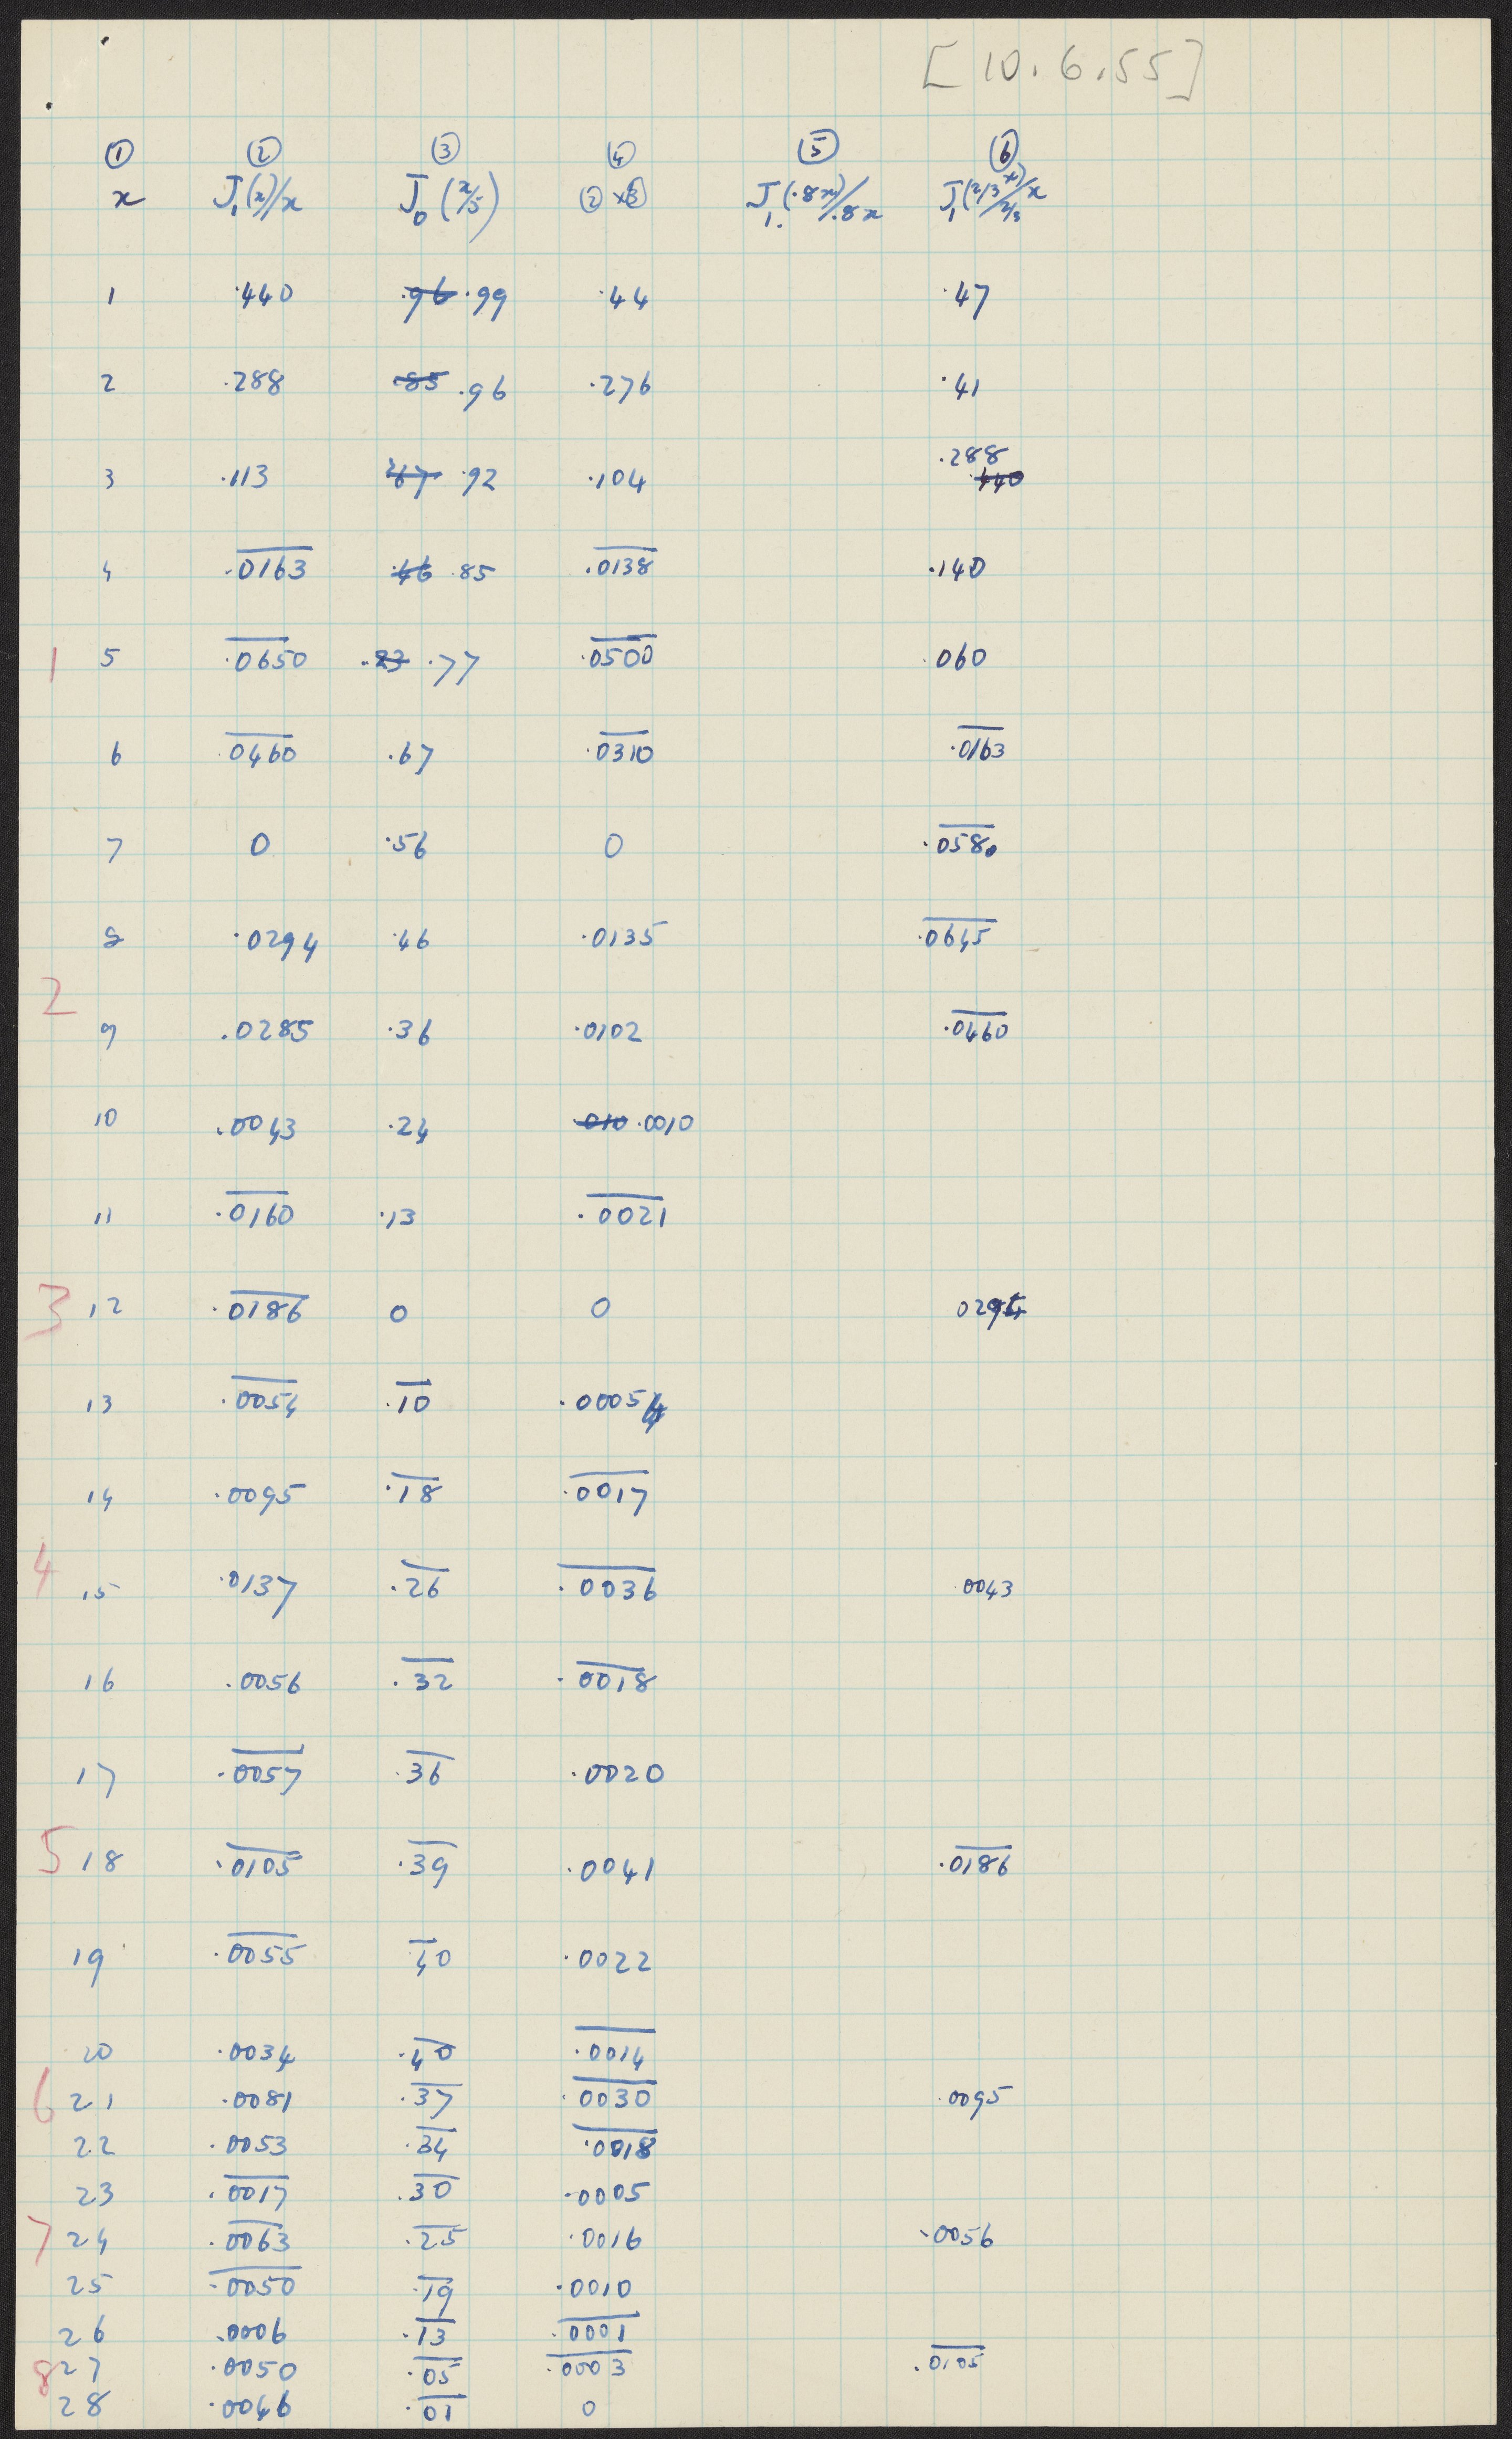 [10.6.55]
① ② ③ ④ ⑤ ⑥
x J₁(x)/x J₀(x/5) ②×③ J₁(.8x)/.8x J₁(2/3 x)/2/3 x
1 .440 ~~.96~~ .99 .44 .47
2 .288 ~~.85~~ .96 .276 .41
3 .113 ~~.67~~ .92 .104 .288 ~~.440~~
4 .0̅1̅6̅3̅ ~~.46~~ .85 .0̅1̅3̅8̅ .140
1 5 .0̅6̅5̅0̅ ~~.23~~ .77 .0̅5̅0̅0̅ .060
6 .0̅4̅6̅0̅ .67 .0̅3̅1̅0̅ .0̅1̅6̅3̅
7 0 .56 0 .0̅5̅8̅0̅
8 .0294 .46 .0135 .0̅6̅4̅5̅
2
9 .0285 .36 .0102 .0̅4̅6̅0̅
10 .0043 .24 ~~.010~~ .0010
11 .0̅1̅6̅0̅ .13 .0̅0̅2̅1̅
3 12 .0̅1̅8̅6̅ 0 0 0294
13 .0̅0̅5̅4̅ .1̅0̅ .00054
14 .0095 .1̅8̅ .0̅0̅1̅7̅
4 15 .0137 .2̅6̅ .0̅0̅3̅6̅ .0043
16 .0056 .3̅2̅ .0̅0̅1̅8̅
17 .0̅0̅5̅7̅ .3̅6̅ .0020
5 18 .0̅1̅0̅5̅ .3̅9̅ .0041 .0̅1̅8̅6̅
19 .0̅0̅5̅5̅ 4̅0̅ .0022
20 .0034 .4̅0̅ .0̅0̅1̅4̅
6 21 .0081 .3̅7̅ .0̅0̅3̅0̅ .0095
22 .0053 .3̅4̅ .0̅0̅1̅8̅
23 .0̅0̅1̅7̅ .3̅0̅ .0005
7 24 .0̅0̅6̅3̅ .2̅5̅ .0016 .0056
25 .0̅0̅5̅0̅ .1̅9̅ .0010
26 .0006 .1̅3̅ .0̅0̅0̅1̅
8 27 .0050 .0̅5̅ .0̅0̅0̅3̅ .0̅1̅0̅5̅
28 .0046 .0̅1̅ 0